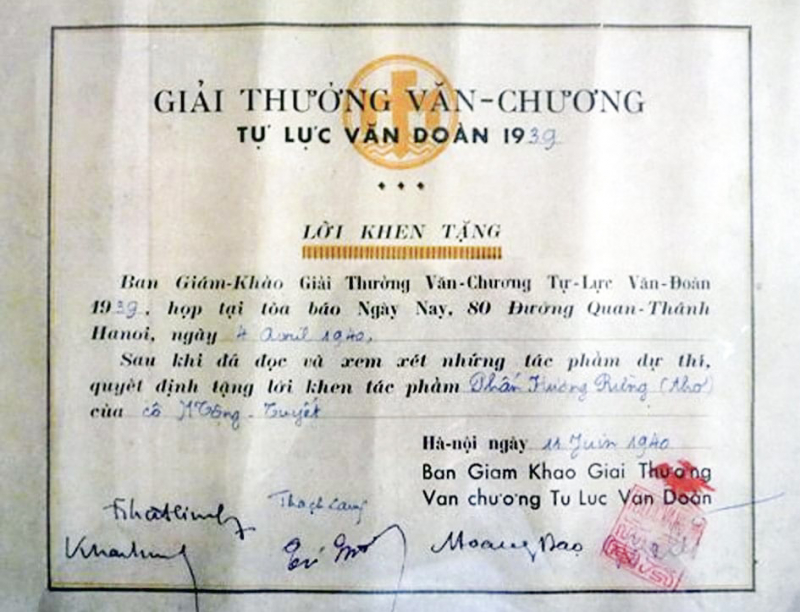 GIẢI THƯỞNG VĂN-CHƯƠNG
TỰ LỰC VĂN ĐOÀN 1939
LỜI KHEN TẶNG
Ban Giám-Khảo Giải Thưởng Văn-Chương Tự-Lực Văn-Đoàn
1939, họp tại tòa báo Ngày Nay, 80 Đường Quan-Thánh
Hanoi, ngày 4 Avril 1940,
Sau khi đã đọc và xem xét những tác phẩm dự thi,
quyết định tặng lời khen tác phẩm Phấn Hương Rừng (thơ)
của cô Mộng-Tuyết
Hà-nội ngày 11 Juin 1940
Ban Giam Khao Giai Thương
Van chương Tu Luc Van Doàn
Nhatlinh Thạch Lam
Khaihung Tú Mỡ Hoang Dao